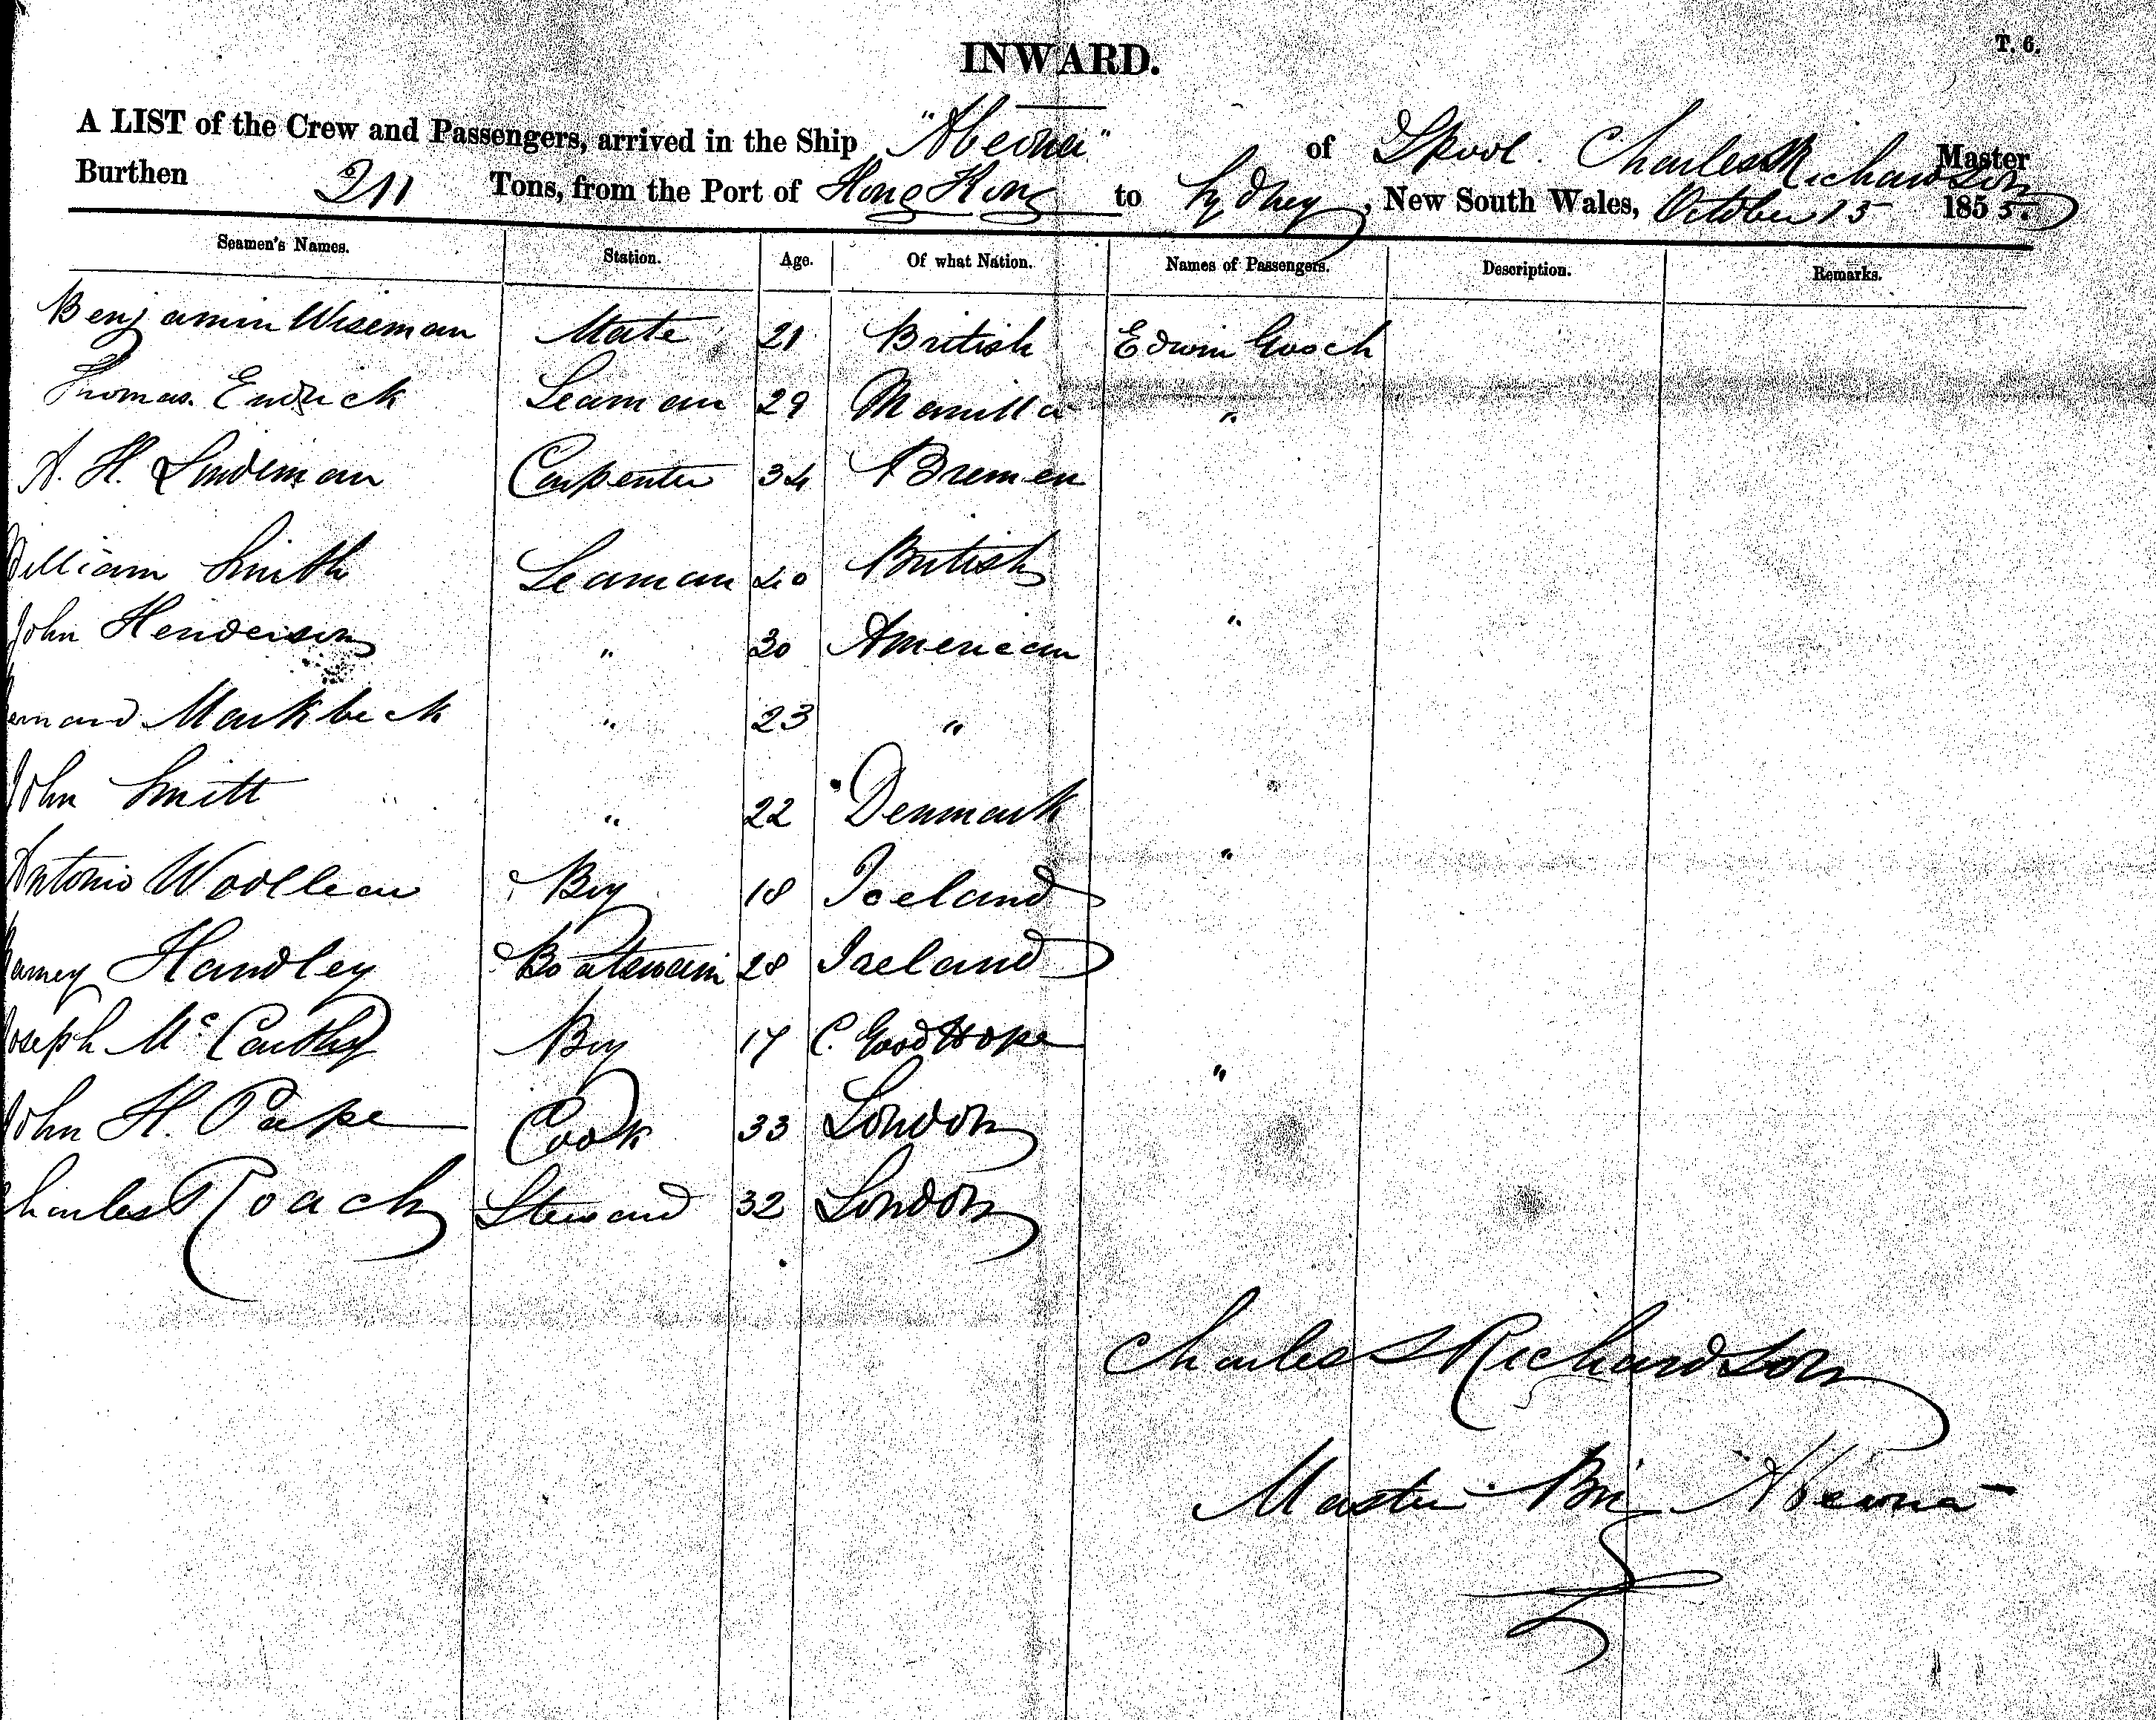 INWARD.
T. 6.
A LIST of the Crew and Passengers, arrived in the Ship "Abeona" of Lpool. Charles Richardson Master
Burthen 211 Tons, from the Port of Hong Kong to Sydney, New South Wales, October 15 1855.
Seamen's Names. Station. Age. Of what Nation. Names of Passengers. Description. Remarks.
Benjamin Wiseman Mate 21 British Edwin Gooch
Thomas Endrick Seaman 29 Manilla "
A. H. Lindeman Carpenter 34 Bremen
William Smith Seaman 40 British
John Henderson " 30 American "
Markbeck " 23 "
John Smitt " 22 Denmark
Antonio Woollean Boy 18 Iceland "
Barney Handley Boatswain 28 Ireland
Joseph McCarthy Boy 17 C. Good Hope "
John H. Pape Cook 33 London
Charles Roach Steward 32 London
Charles Richardson
Master Brig Abeona